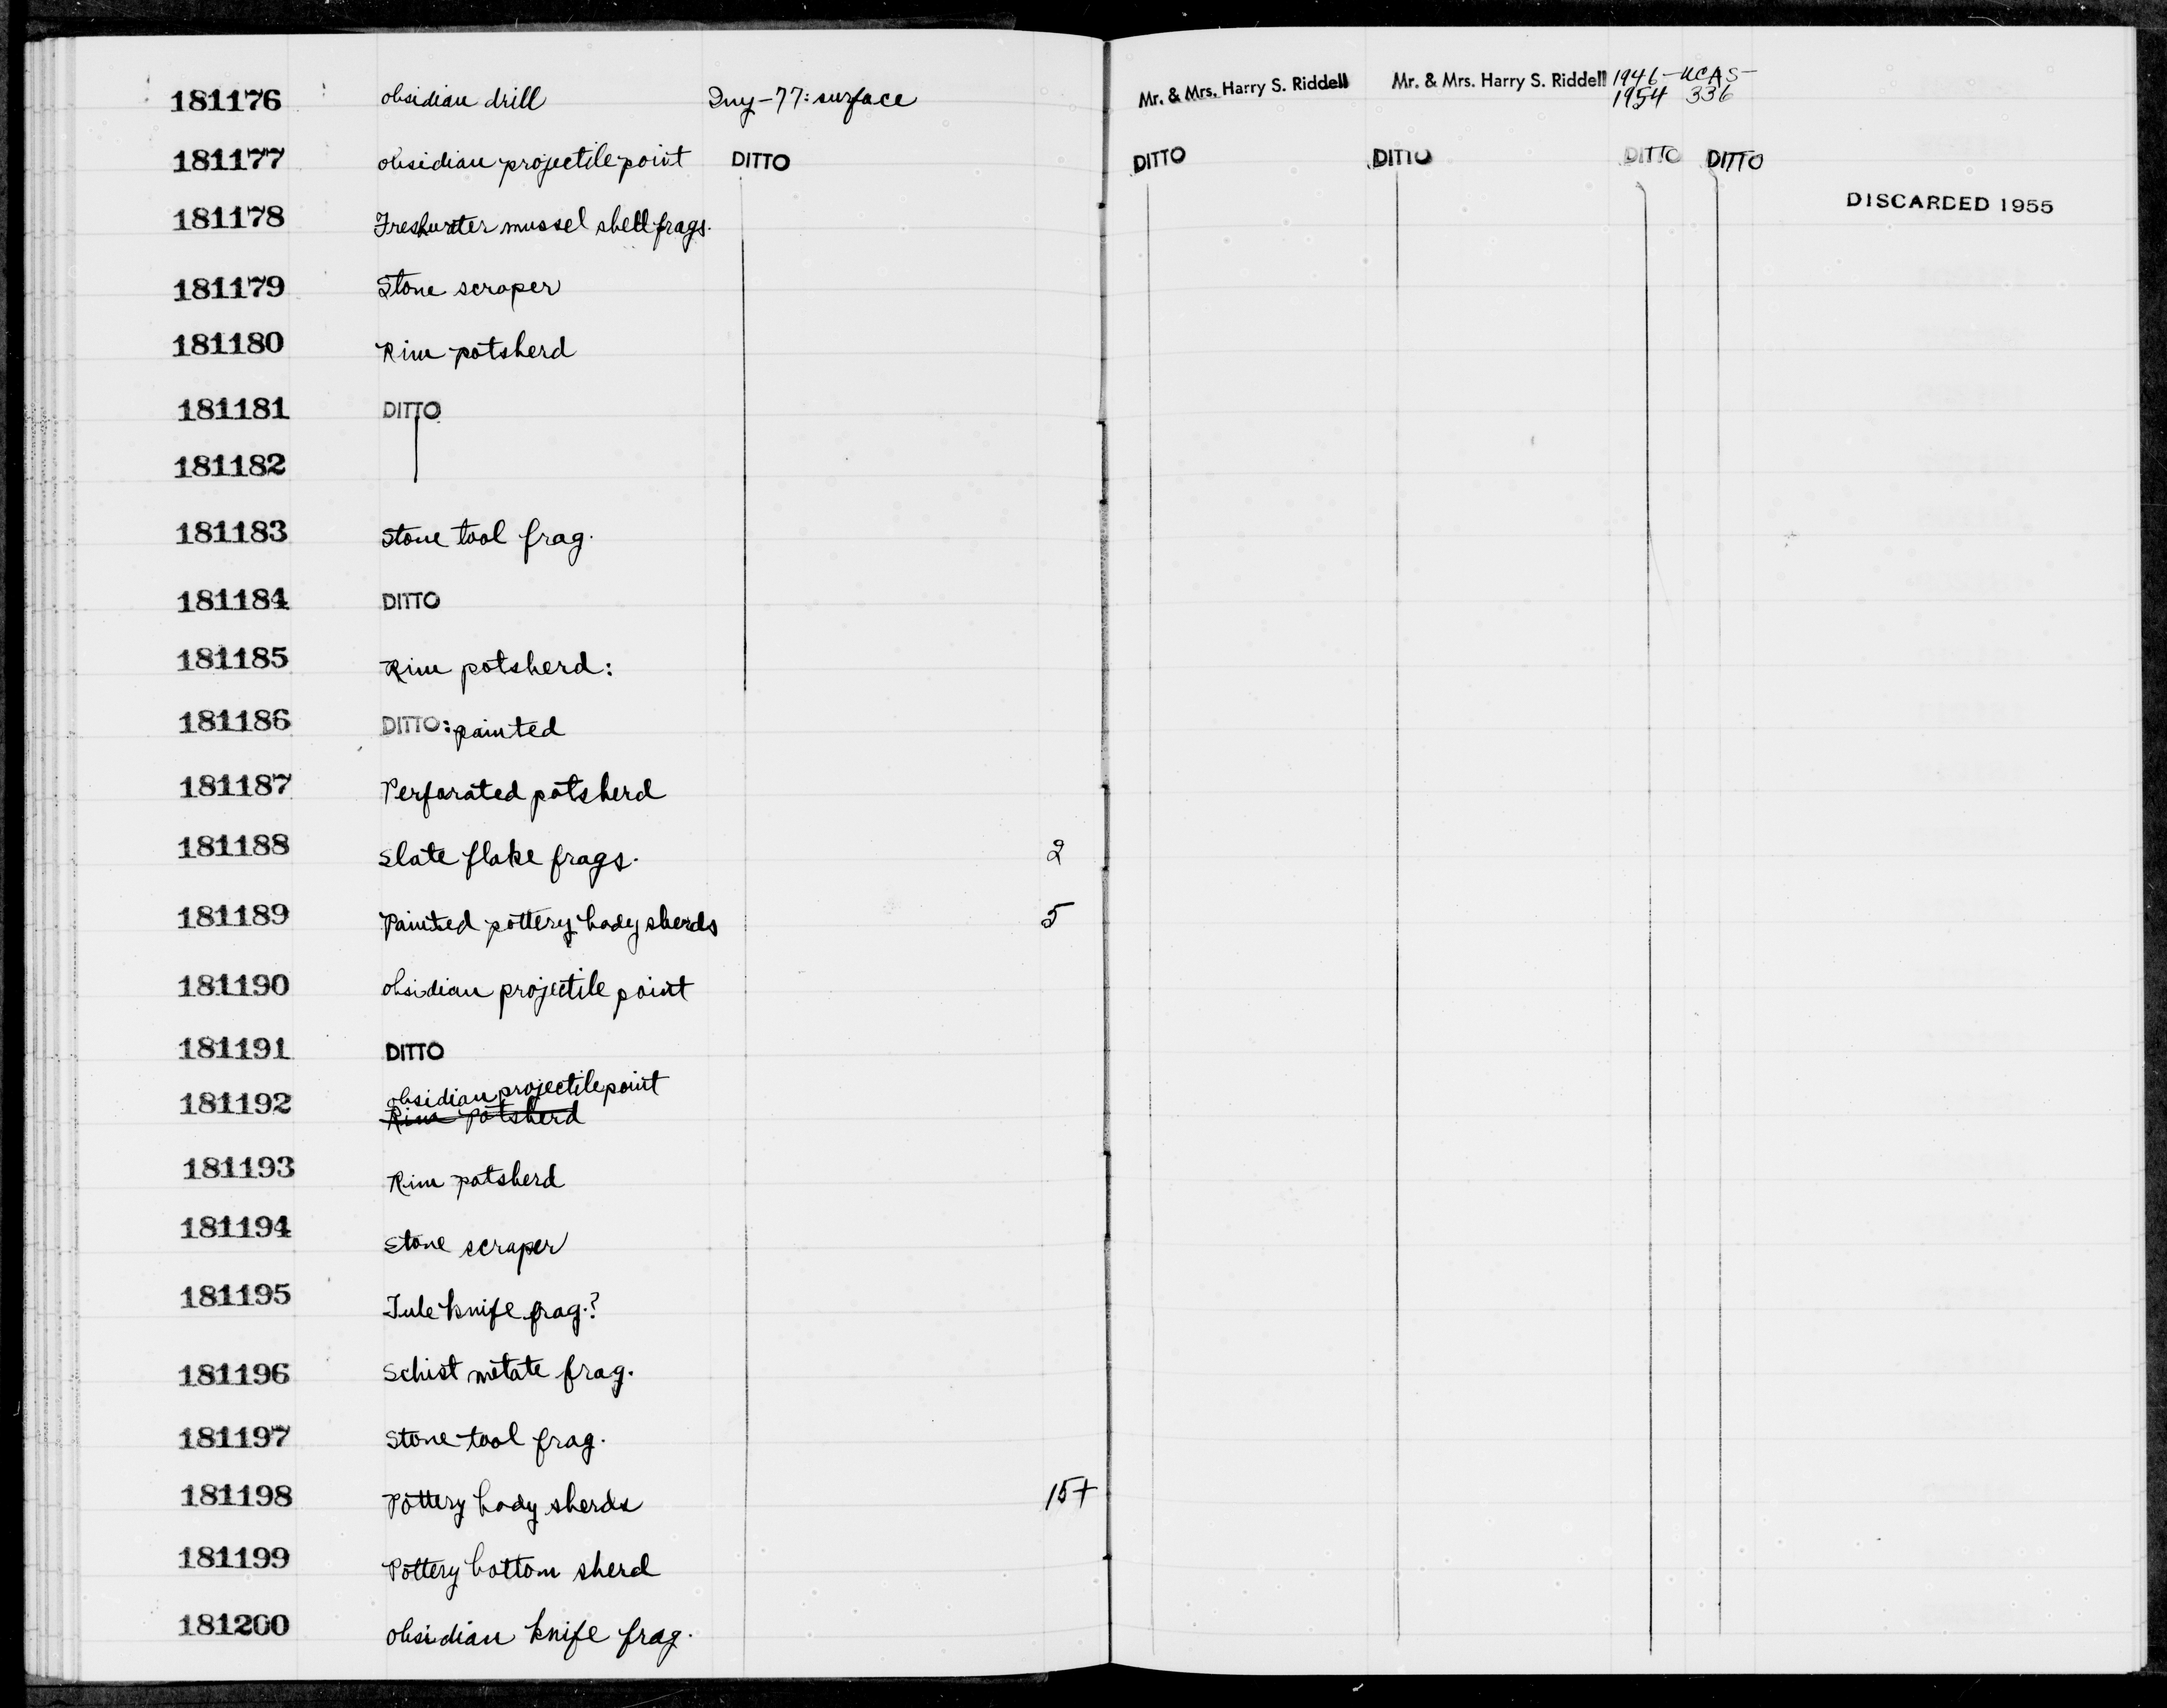 181176 obsidian drill Iny-77: surface Mr. & Mrs. Harry S. Riddell Mr. & Mrs. Harry S. Riddell 1946- UCAS-
1954 336
181177 obsidian projectile point DITTO DITTO DITTO DITTO DITTO
181178 Freshwater mussel shell frags. DISCARDED 1955
181179 Stone scraper
181180 Rim potsherd
181181 DITTO
181182
181183 Stone tool frag.
181184 DITTO
181185 Rim potsherd:
181186 DITTO: painted
181187 Perforated potsherd
181188 Slate flake frags. 2
181189 Painted pottery body sherds 5
181190 obsidian projectile point
181191 DITTO
181192 obsidian projectile point
Rim potsherd
181193 Rim potsherd
181194 Stone scraper
181195 Tule knife frag.?
181196 Schist metate frag.
181197 Stone tool frag.
181198 Pottery body sherds 15+
181199 Pottery bottom sherd
181200 obsidian knife frag.